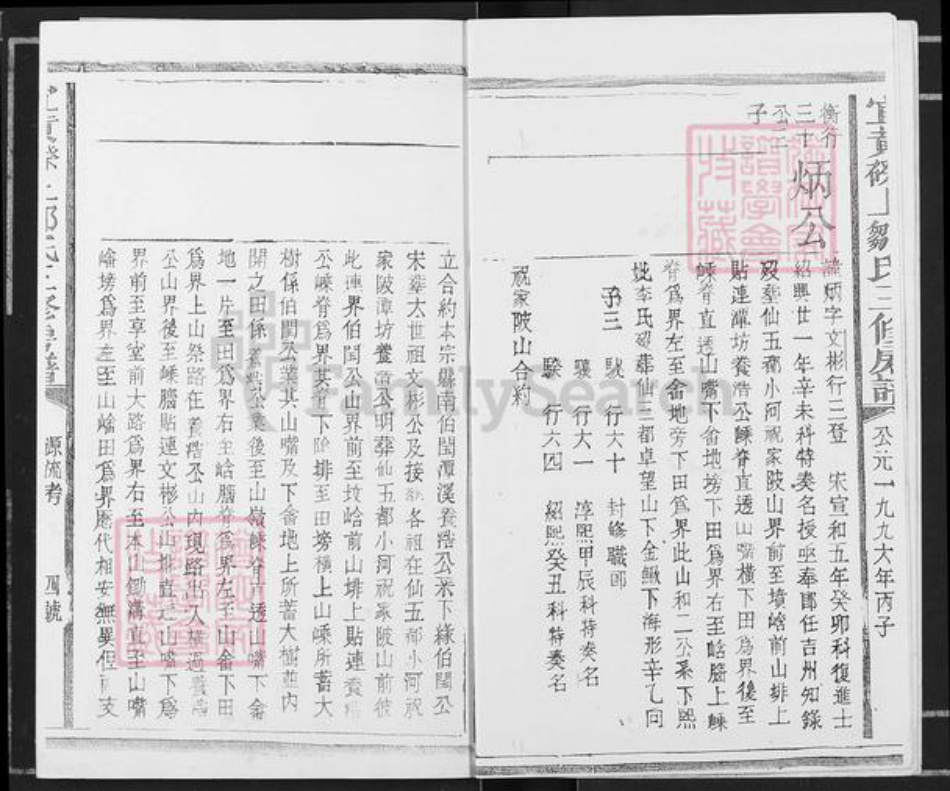 公元一九九六年丙子
衡行三十公二子
炳公
炳字文彬行三登 宋宣和五年癸卯科復進士
紹興廿一年辛未科特奏名授迪奉郎任吉州知錄
歿塟仙五都小河祝家陂山界前至墳峆前山排上
貼連潭坊養浩公嵊脊直透山嘴橫下田為界後至
嵊脊直透山嘴下畬地塝下田為界右至峆腦上嵊
脊為界左至畬地旁下田為界此山和二公系下熙
妣李氏歿塟仙三都卓望山下金鰍下海形辛乙向
子三
行六十 封修職郎
驤 行大一 淳熙甲辰科特奏名
行六四 紹熙癸丑科特奏名
祝家陂山合約
立合約本宗縣南伯閏潭溪養浩公系下緣伯閏公
宋塟太世祖文彬公及接 各祖在仙五都小河祝
家陂潭坊養浩公明塟仙五都小河祝家陂山前彼
此連界伯閏公山界前至坟峆前山排上貼連養浩
公嵊脊為界其山下除排至田塝橫上山嵊所蓄大
樹係伯閏公業其山嘴及下畬地上所蓄大樹並內
開之田係養浩公業後至山嶺嵊脊直透山嘴下畬
地一片至田為界右至峆腦脊為界左至山畬下田
為界上山祭路在養浩公山內現路出入橫過養浩
公山界後至嵊腦貼連文彬公山排直透山嘴下為
界前至享堂前大路為界右至本山鋤溝直至山嘴
崘塝為界左至山崘田為界歷代相安無異但 支
源流考
四號
FamilySearch